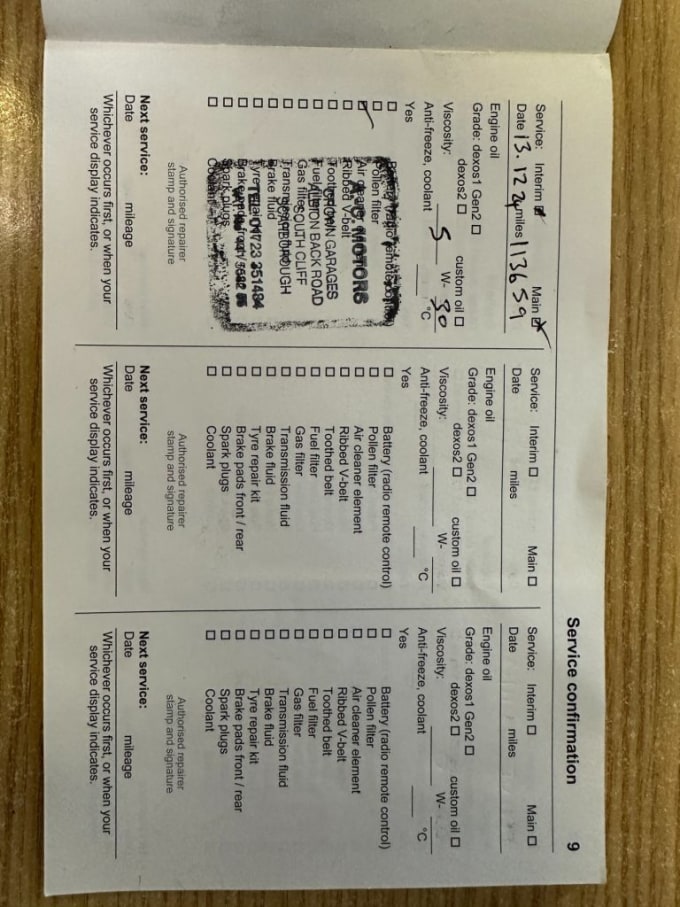 Service confirmation 9
Service: Interim Main
Date 13.12 24 miles 113659
Engine oil
Grade: dexos1 Gen2
dexos2 custom oil
Viscosity: 5 W- 30
Anti-freeze, coolant °C
Yes
Battery (radio remote control)
Pollen filter
Air cleaner element
Ribbed V-belt
Toothed belt
Fuel filter
Gas filter
Transmission fluid
Brake fluid
Tyre repair kit
Brake pads front / rear
Spark plugs
Coolant
MOTORS
CROWN GARAGES
ALBION BACK ROAD
SOUTH CLIFF
SCARBOROUGH
TEL 01723 351484
Authorised repairer
stamp and signature
Next service:
Date mileage
Whichever occurs first, or when your
service display indicates.
Service: Interim Main
Date miles
Engine oil
Grade: dexos1 Gen2
dexos2 custom oil
Viscosity: W-
Anti-freeze, coolant °C
Yes
Battery (radio remote control)
Pollen filter
Air cleaner element
Ribbed V-belt
Toothed belt
Fuel filter
Gas filter
Transmission fluid
Brake fluid
Tyre repair kit
Brake pads front / rear
Spark plugs
Coolant
Authorised repairer
stamp and signature
Next service:
Date mileage
Whichever occurs first, or when your
service display indicates.
Service: Interim Main
Date miles
Engine oil
Grade: dexos1 Gen2
dexos2 custom oil
Viscosity: W-
Anti-freeze, coolant °C
Yes
Battery (radio remote control)
Pollen filter
Air cleaner element
Ribbed V-belt
Toothed belt
Fuel filter
Gas filter
Transmission fluid
Brake fluid
Tyre repair kit
Brake pads front / rear
Spark plugs
Coolant
Authorised repairer
stamp and signature
Next service:
Date mileage
Whichever occurs first, or when your
service display indicates.